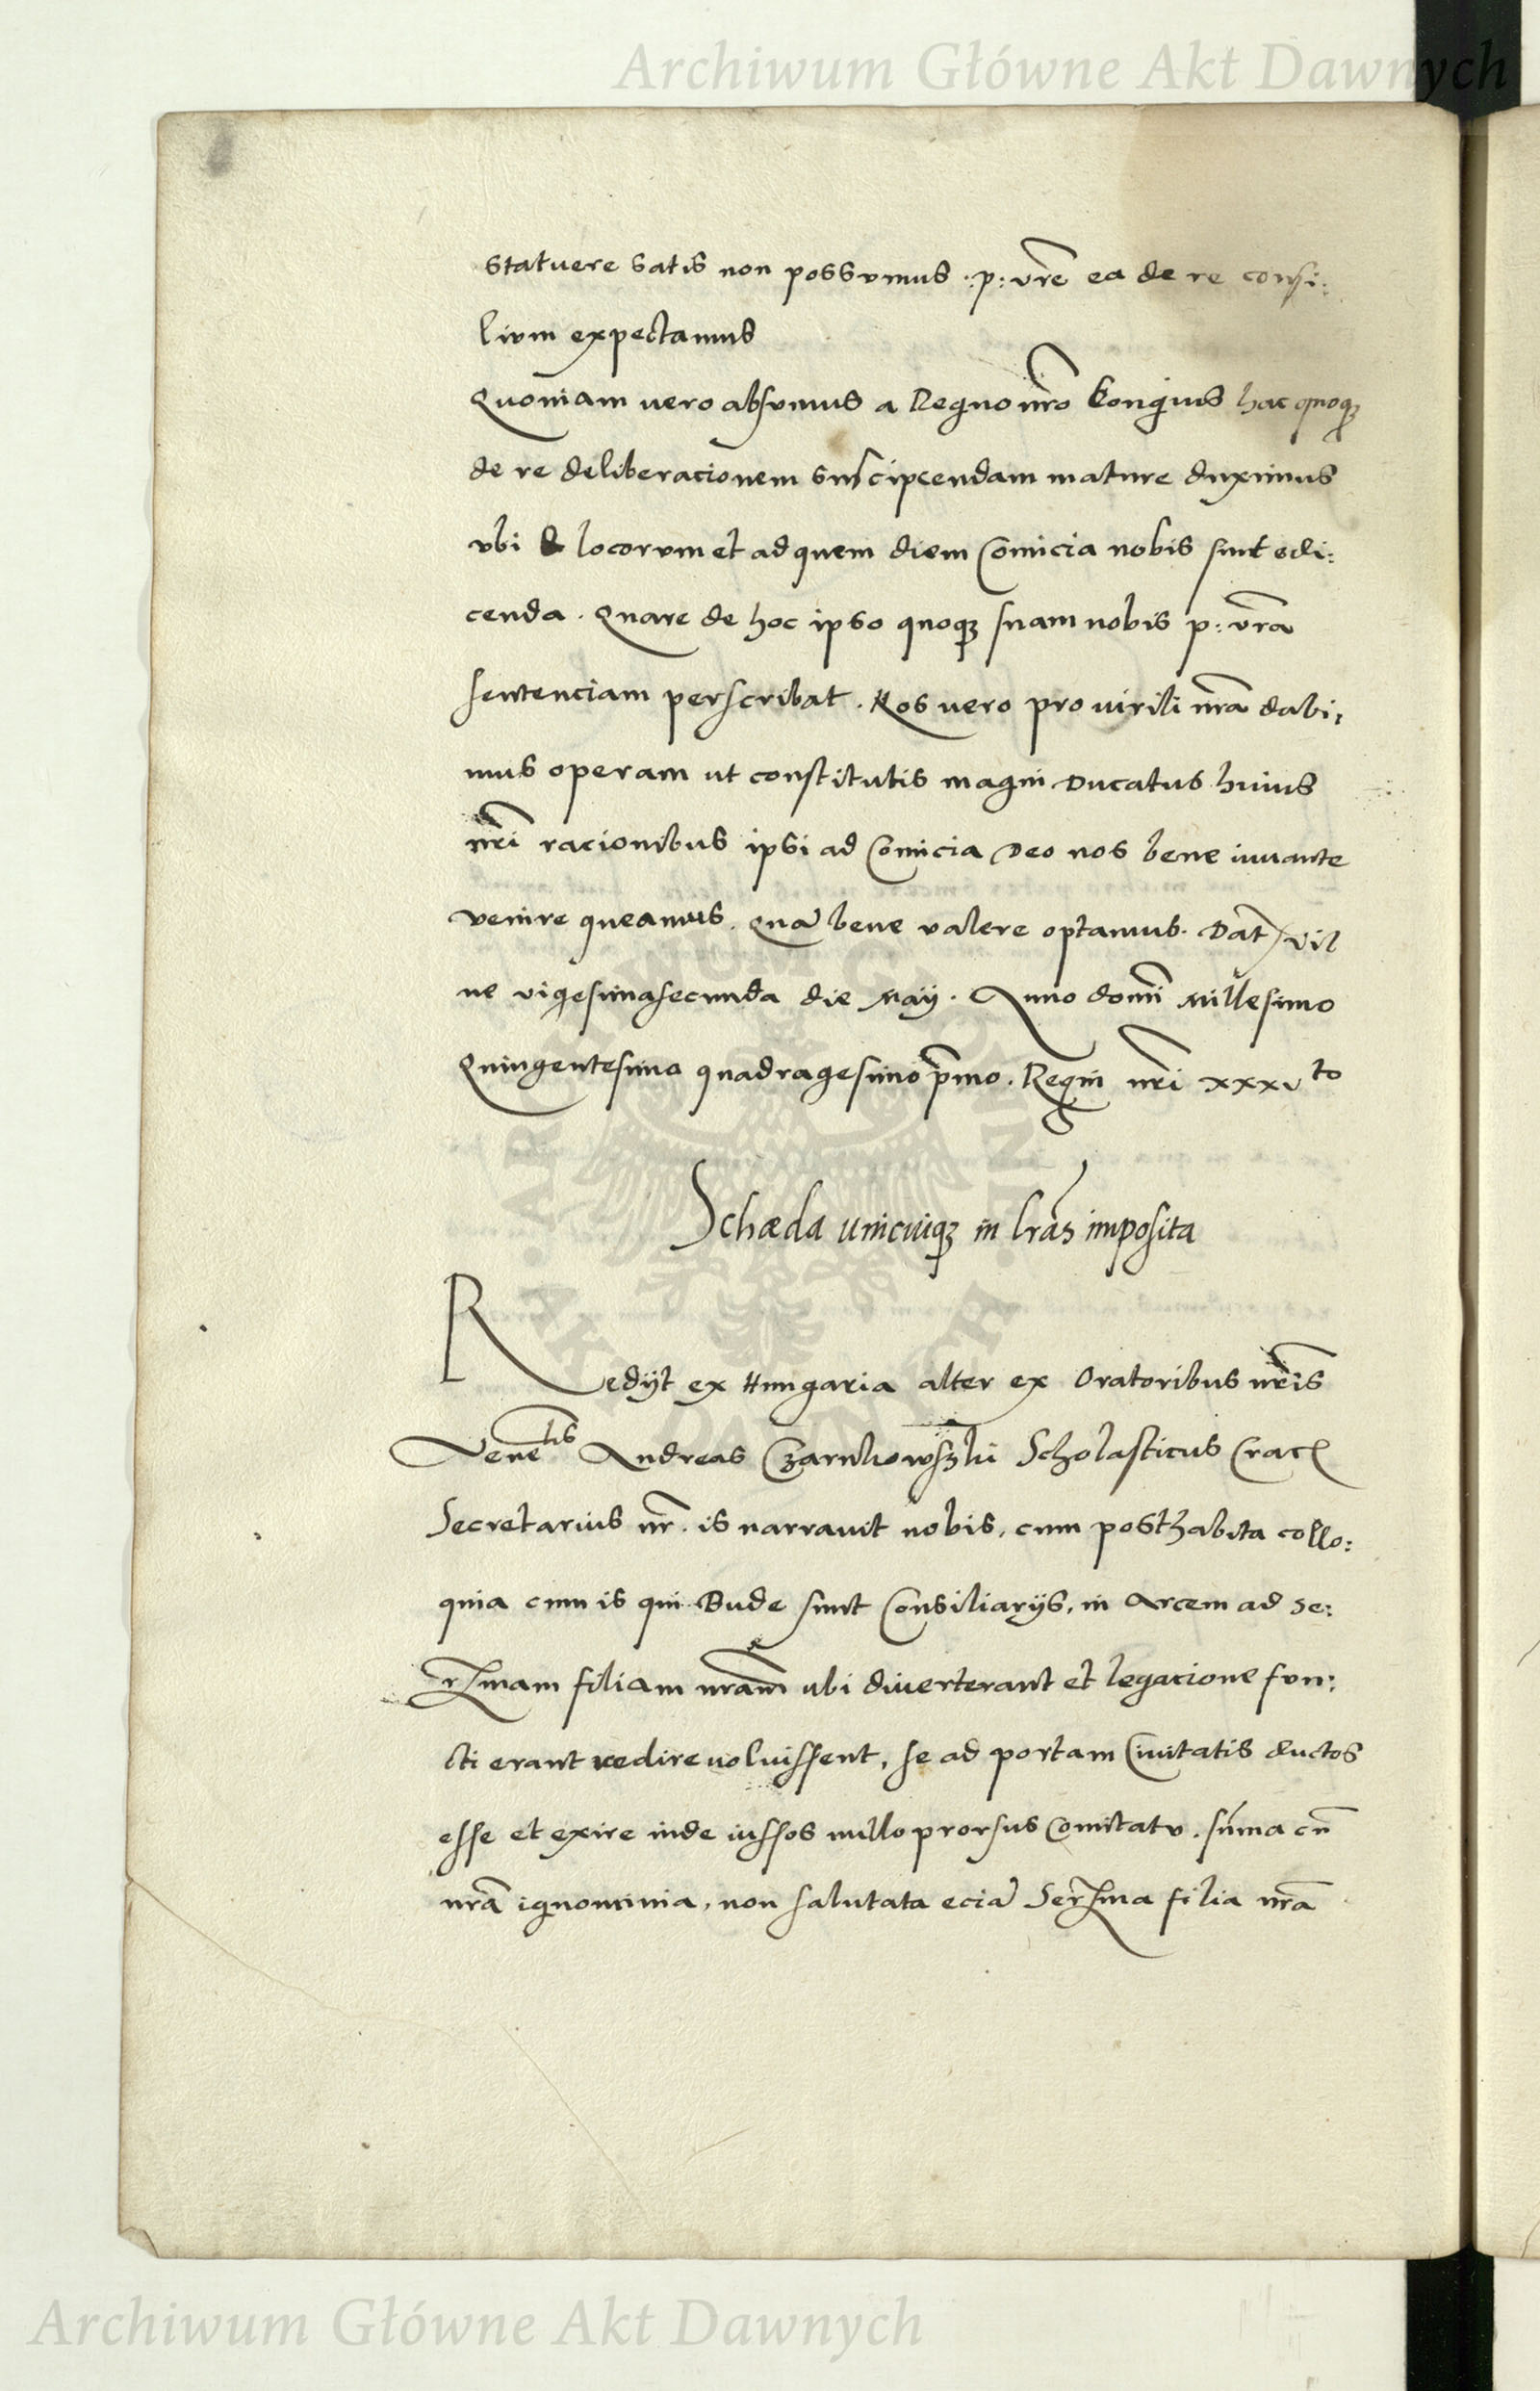 Archiwum Główne Akt Dawnych
statuere satis non possumus .p: vrẽ ea de re consi:
lium expectamus
Quoniam vero absumus a Regno nr̃o longius hac quoqꝫ
de re deliberacionem suscipiendam mature duximus
vbi locorum et ad quem diem Comicia nobis sint edi:
cenda . Quare de hoc ipso quoqꝫ suam nobis p: vrã
sentenciam perscribat . Nos vero pro virili nrã dabi:
mus operam ut constitutis magni Ducatus huius
nrĩ racionibus ipsi ad Comicia Deo nos bene iuuante
venire queamus . Quã bene valere optamus. Dat̃ Vil
ne vigesimasecunda die Maij . Anno domĩ Millesimo
Quingentesimo quadragesimo p̃mo . Regni nrĩ xxxv to
Schæda unicuiqꝫ in lrãs imposita
Redijt ex Hungaria alter ex Oratoribus nrĩs
Venẽlis Andreas Czarnkowszki Scholasticus Crac̃
Secretarius nr̃ . is narrauit nobis, cum post habita collo:
quia cum is qui Bude sunt Consiliarijs, in Arcem ad Se:
r̃mam filiam nrãm ubi diuerterant et legacione fun:
cti erant redire voluissent, se ad portam Ciuitatis ductos
esse et exire inde iussos nullo prorsus Comitatu . sũma cũ
nrã ignominia, non salutata eciã Ser̃ma filia nrã
ARCHIWUM GŁÓWNE AKT DAWNYCH
Archiwum Główne Akt Dawnych